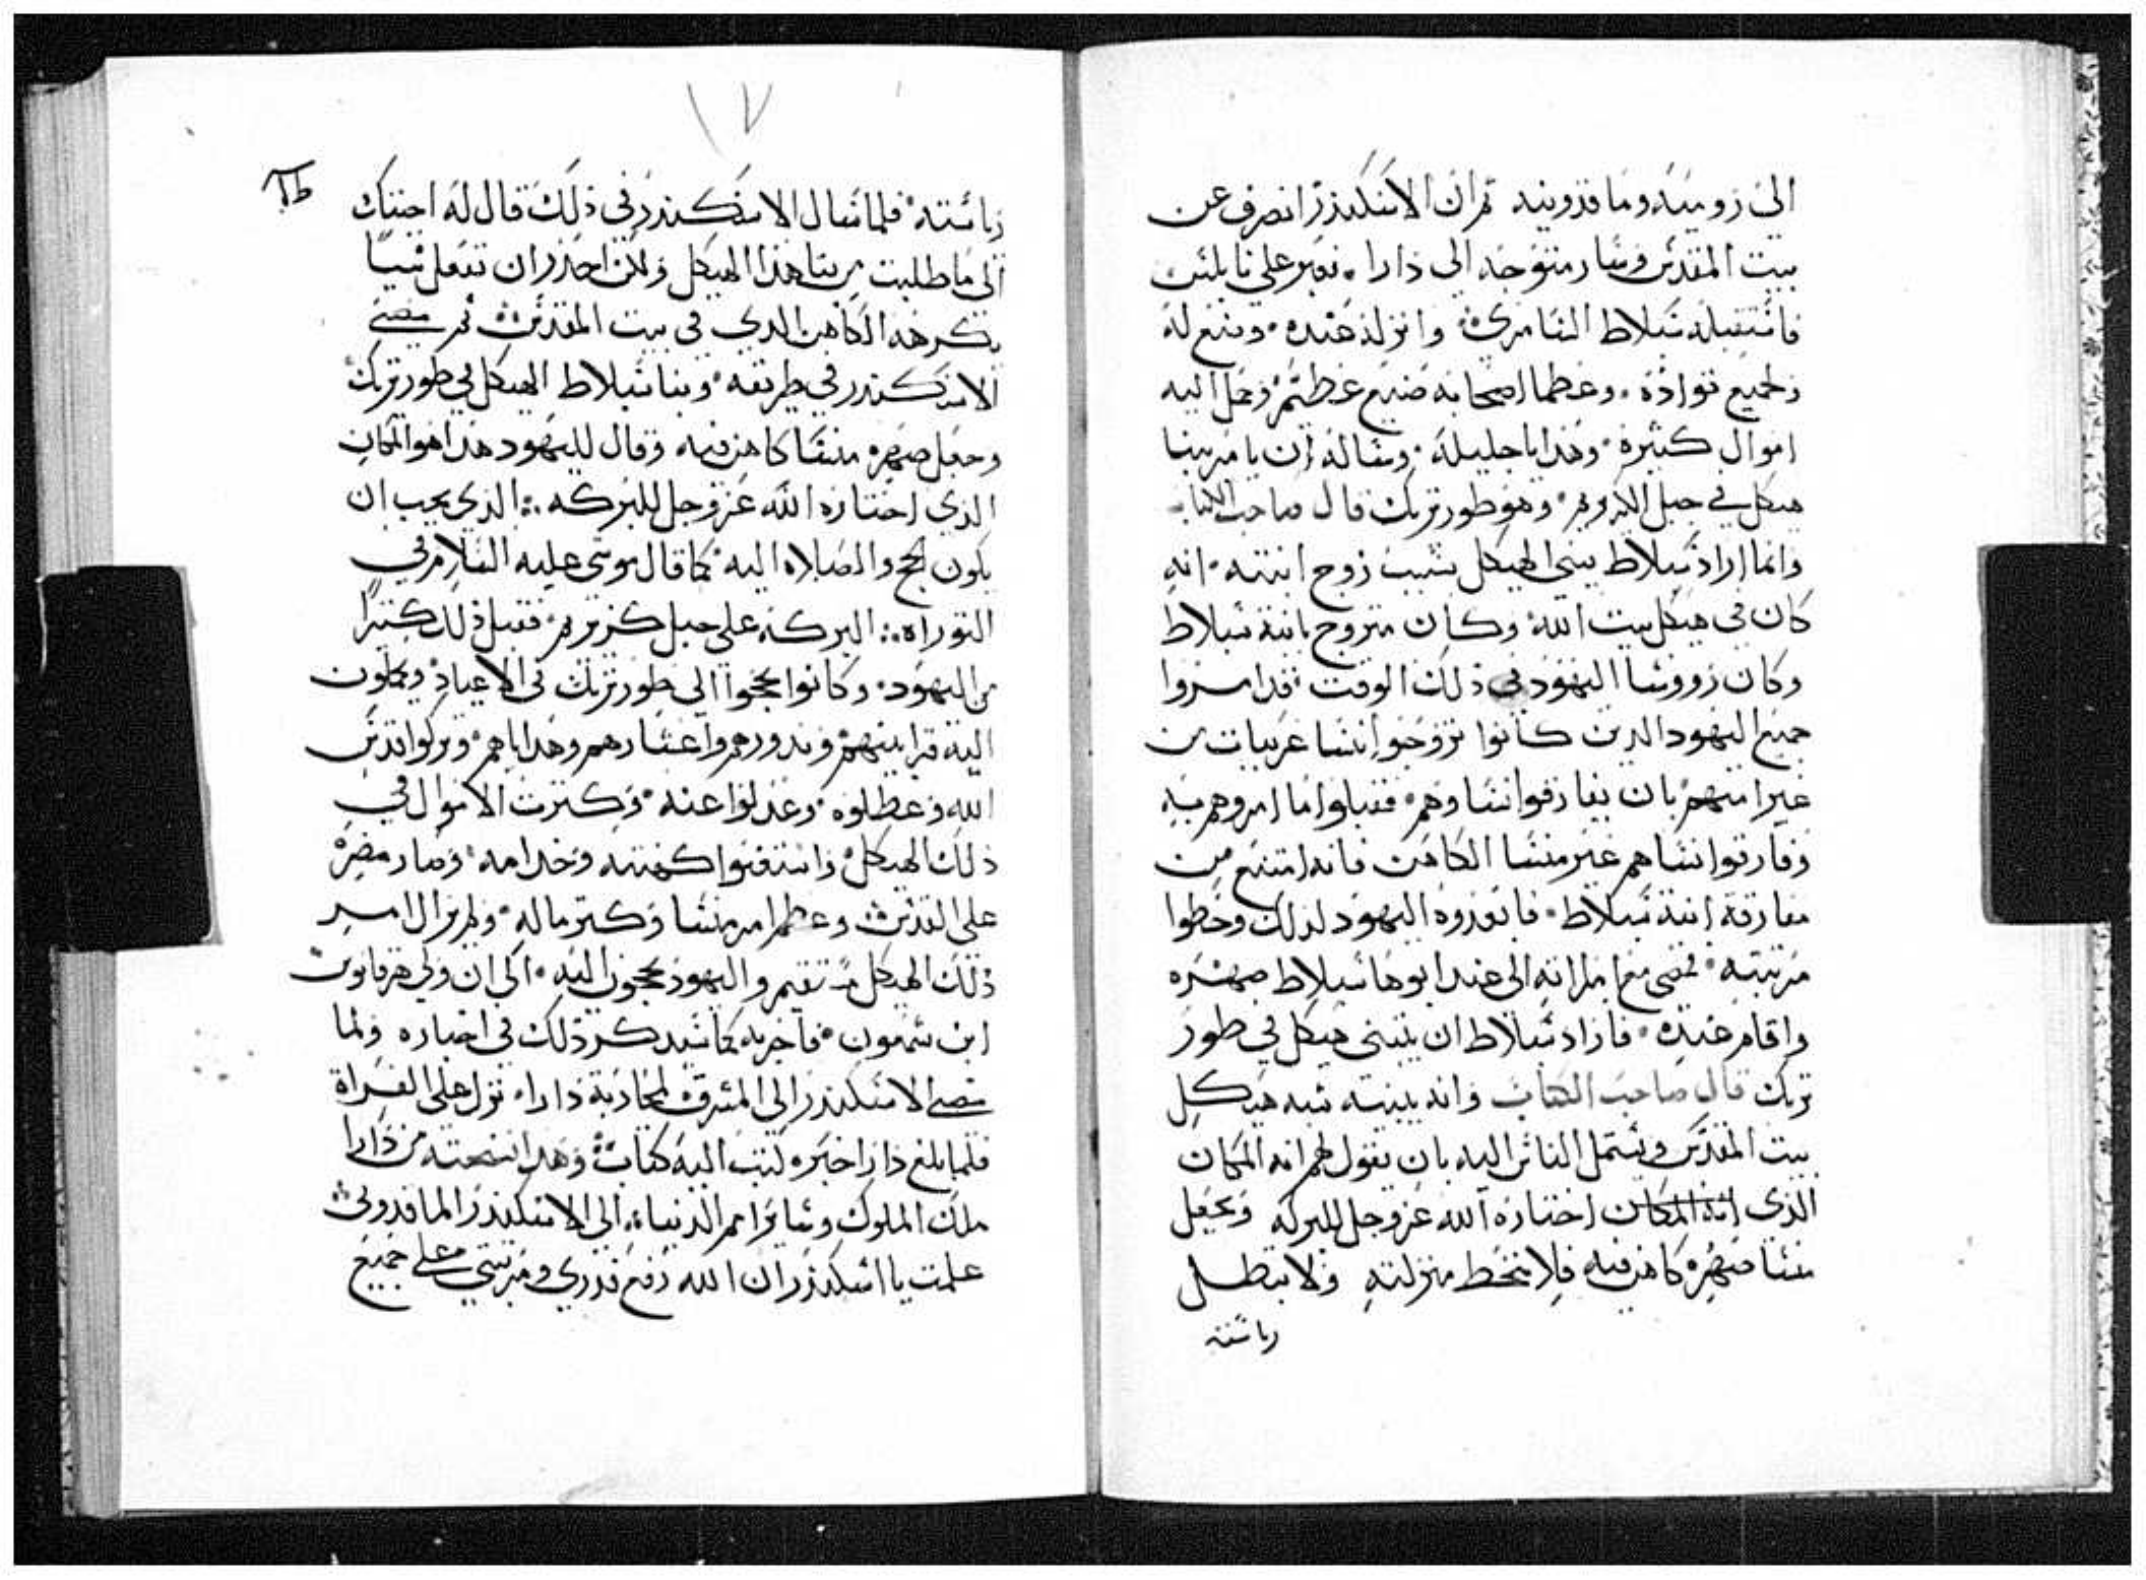 الى رومية وماقدونيه ثم ان الاسكندر انصرف عن
بيت المقدس وسار متوجه الى دارا فعبر على نابلس
فاستقبله سبلاط السامري وانزله عنده وصنع له
ولجميع قواده وعظما اصحابه صنيع عظيم وحمل اليه
اموال كثيرة وهدايا جليلة وساله ان يامر ببنا
هيكل في جبل الكروم وهو طور تربك قال صاحب الكتاب
وانما اراد سبلاط يبني الهيكل بسبب زوج ابنته انه
كان في هيكل بيت الله وكان متزوج بابنة سبلاط
وكان رووسا اليهود في ذلك الوقت قد امروا
جميع اليهود الدين كانوا تزوجوا بنسا غريبات من
غير امتهم بان يفارقوا نساوهم فقبلوا ما امروهم به
وفارقوا نساهم غير منشا الكاهن فانه امتنع من
مفارقة ابنة سبلاط فابعدوه اليهود لذلك وحطوا
مرتبته فمضى مع امراته الى عند ابوها سبلاط صهره
واقام عنده فاراد سبلاط ان يبني هيكل في طور
تربك قال صاحب الكتاب وانه يبنيه شبه هيكل
بيت المقدس ويستمل الناس اليه بان يقول لهم انه المكان
الذي انه المكان اختاره الله عز وجل للبركه ويجعل
منشا صهره كاهن فيه فلا تنحط منزلته ولا تبطل
رياسته
رياسته فلما سال الاسكندر في ذلك قال له اجبتك
الى ما طلبت من بنا هذا الهيكل ولكن احذر ان تفعل شيا
يكرهه الكاهن الدي في بيت المقدس ثم مضى
الاسكندر في طريقه وبنا سبلاط الهيكل في طور تربك
وجعل صهره منشا كاهن فيه وقال لليهود هذا هو المكان
الذي اختاره الله عز وجل للبركه الذي يجب ان
يكون الحج والصلاه اليه كما قال موسى عليه السلام في
التوراه البركة على جبل كزيريم فقبل ذلك كثيرا
من اليهود وكانوا يحجوا الى طور تربك في الاعياد ويحملون
اليه قرابينهم وندورهم واعشارهم وهداياهم وتركوا قدس
الله وعطلوه وعدلوا عنه وكثرت الاموال في
ذلك الهيكل واستغنوا كهنته وخدامه وصار مضرة
على القدس وعظم امر منشا وكتر ماله ولم يزال امر
ذلك الهيكل مستقيم واليهود يحجون اليه الى ان ولي هرقانوس
ابن شمعون فاخربه كما سيدكر ذلك في اخباره ولما
مضى الاسكندر الى المشرق لمحاربة دارا نزل على الفراة
فلما بلغ دارا خبره كتب اليه كتاب وهذا نسخته من دارا
ملك الملوك وساير امم الدنيا الى الاسكندر الماقدوني
علمت يا اسكندر ان الله رفع قدري ومرتبتي على جميع